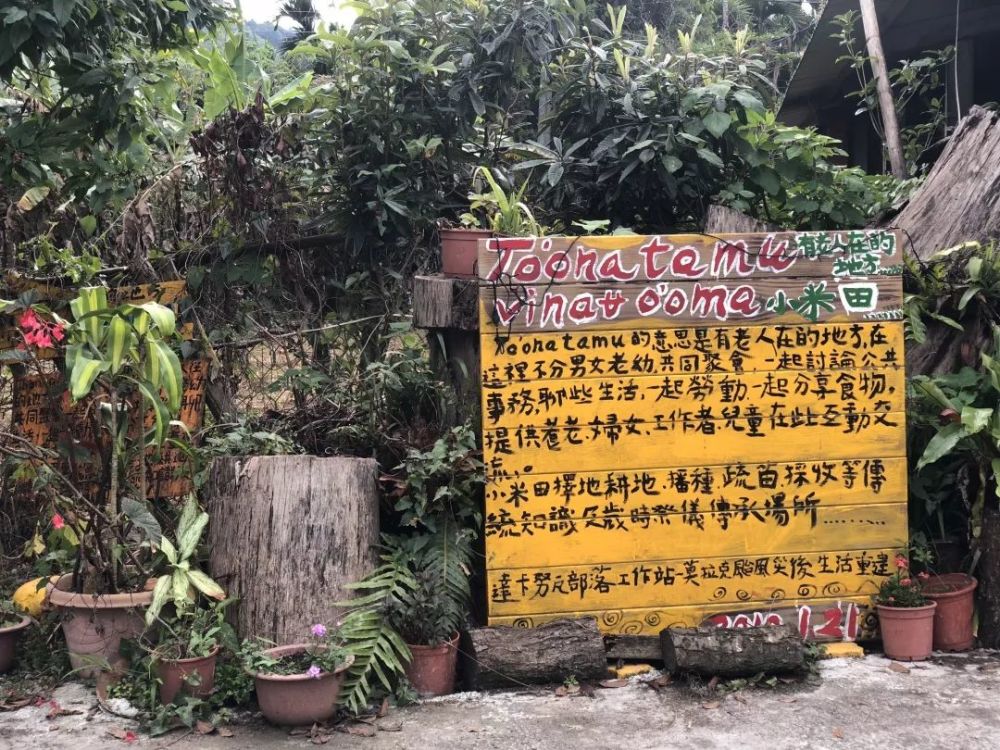 To'onatamu 有老人在的
地方......
vina u o'oma 小米田
To'onatamu的意思是有老人在的地方,在
這裡不分男女老幼,共同聚會,一起討論公共
事務,聊些生活,一起勞動一起分享食物。
提供養老、婦女、工作者、兒童在此互動交
流..。
小米田擇地耕地、播種、疏苗、採收等傳
統知識及歲時祭儀傳承場所........
達卡努瓦部落工作站-莫拉克颱風災後生活重建
2010 1.21